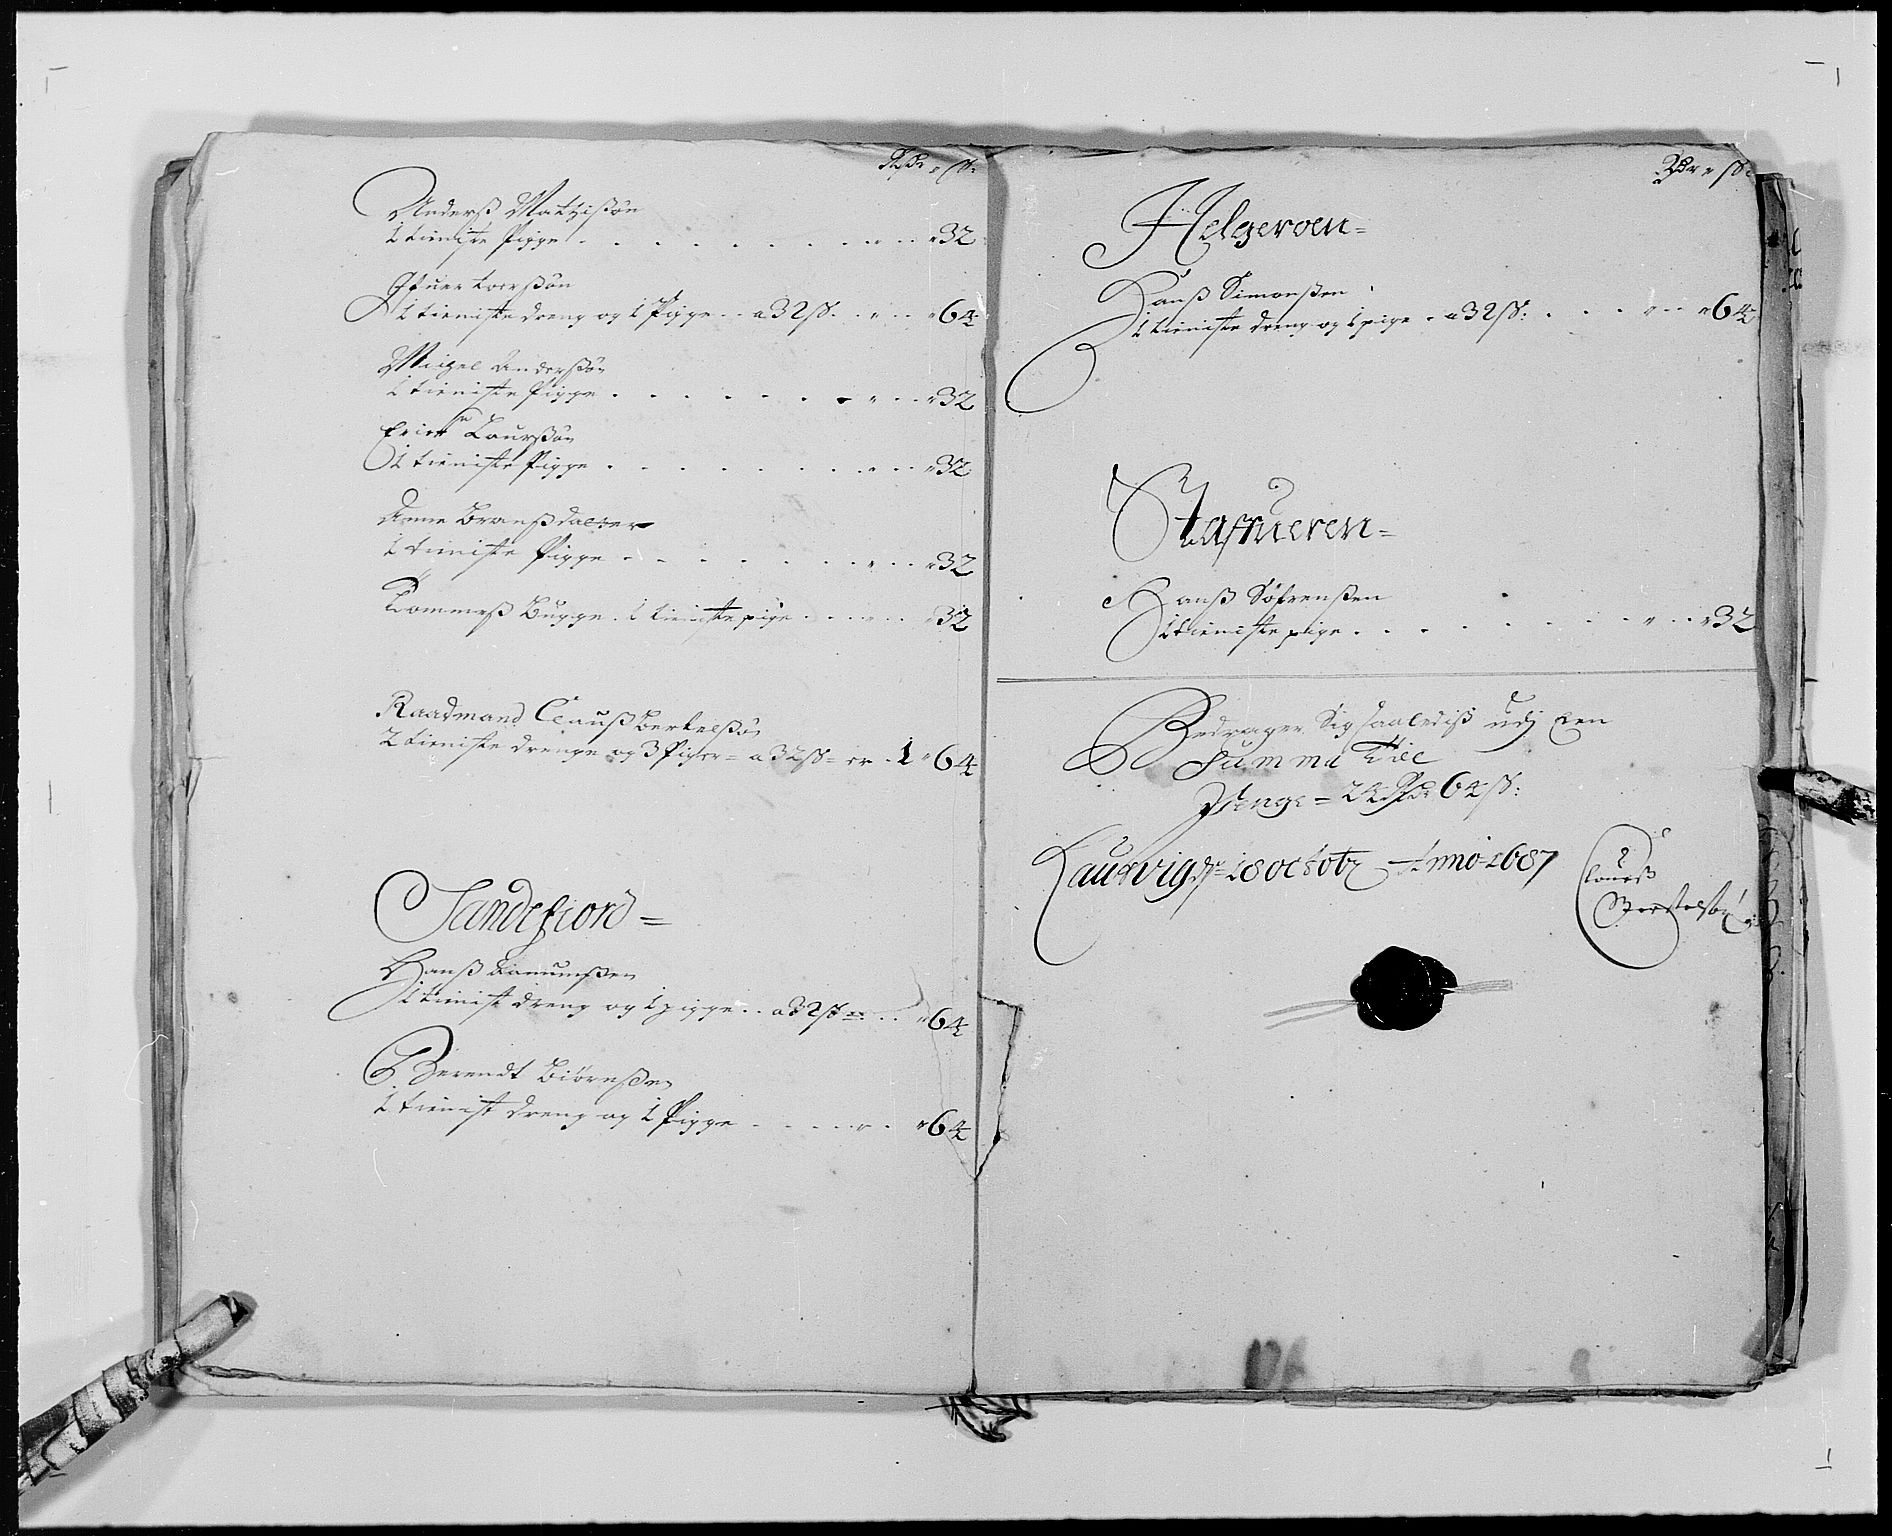 Rdr ß:
Anderß Mattißøn
1 tieniste Pigge . . . . . . . . . " 32
Ifuer Loerßøn
1 tieniste dreng og 1 Pigge . . a 32 ß: . . " 64
Migel Anderßøn
1 tieniste Pigge . . . . . . . . . " 32
Erick Laurßøn
1 tieniste Pigge . . . . . . . . . " 32
Anne Branßdatter
1 tieniste Pigge . . . . . . . . . " 32
Tommeß Bugge . 1 tieniste pige . . . . . " 32
Raadmand Clauß Bertelßøn
2 tieniste drenge og 3 Piger = a 32 ß = er . 1 " 64
Sandefiord =
Hanß
1 tienist dreng og 1 pigge . . a 32 ß er . . " 64
Berendt Biørnßen
1 tienist dreng og 1 Pigge . . . . . " 64
Rdr " ß:
Helgeroen =
Hanß Simonßen
1 tieniste dreng og 1 pige . a 32 ß: . . . . " 64
Stafueren =
Hanß Søfrenßen
1 tieniste pige . . . . . . . . " 32
Bedrager Sig saalediß udj Een
Summa Till
Penge = 24 Rdr 64 ß:
Laurvig d: 18 octobr Anno 1687
Clauß
Bertelsøn